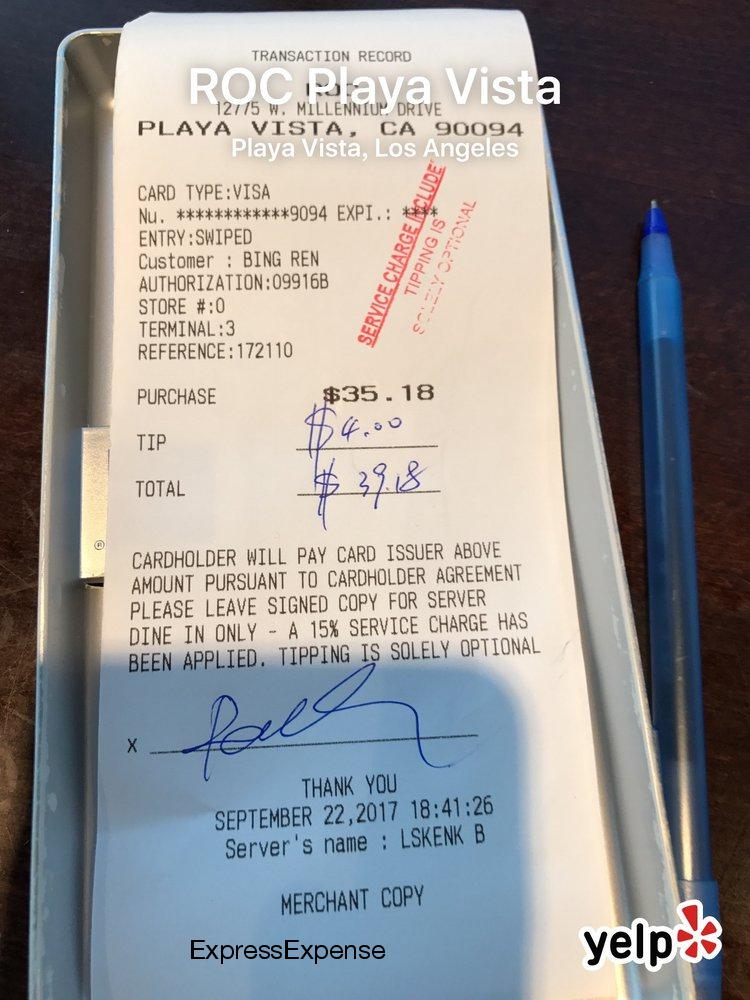 TRANSACTION RECORD
ROC Playa Vista
12775 W. MILLENNIUM DRIVE
PLAYA VISTA, CA 90094
Playa Vista, Los Angeles
CARD TYPE:VISA
Nu. ************9094 EXPI.: ****
ENTRY:SWIPED
Customer : BING REN
AUTHORIZATION:09916B
STORE #:0
TERMINAL:3
REFERENCE:172110
SERVICE CHARGE INCLUDE
TIPPING IS
SOLELY OPTIONAL
PURCHASE $35.18
TIP $4.00
TOTAL $39.18
®
CARDHOLDER WILL PAY CARD ISSUER ABOVE
AMOUNT PURSUANT TO CARDHOLDER AGREEMENT
PLEASE LEAVE SIGNED COPY FOR SERVER
DINE IN ONLY - A 15% SERVICE CHARGE HAS
BEEN APPLIED. TIPPING IS SOLELY OPTIONAL
X
THANK YOU
SEPTEMBER 22,2017 18:41:26
Server's name : LSKENK B
MERCHANT COPY
ExpressExpense
yelp